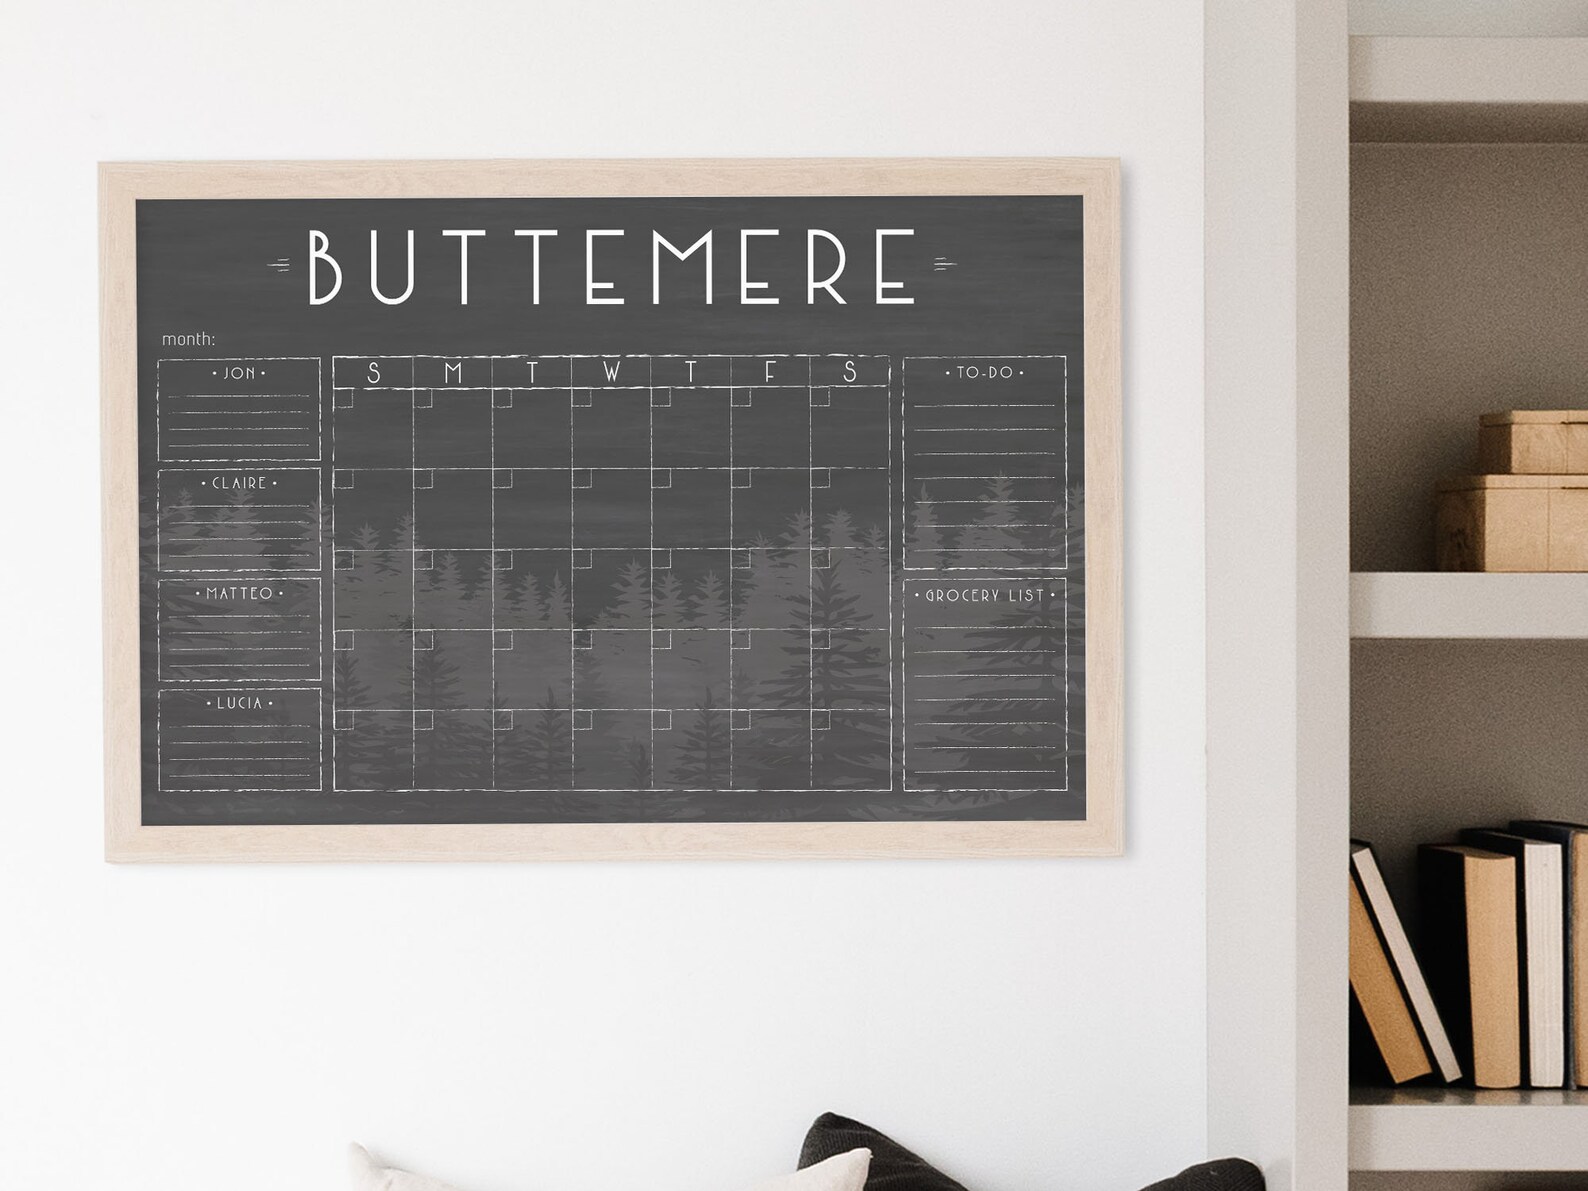 BUTTEMERE
month:
• JON •
S M T W T F S
• TO-DO •
• CLAIRE •
• MATTEO •
• GROCERY LIST •
• LUCIA •